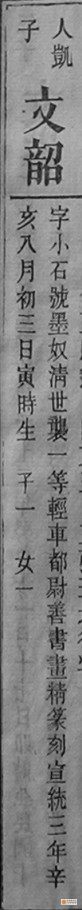 人凱
子
文韶
字小石號墨奴淸世襲一等輕車都尉善書畫精篆刻宣統三年辛
亥八月初三日寅時生 子一 女一